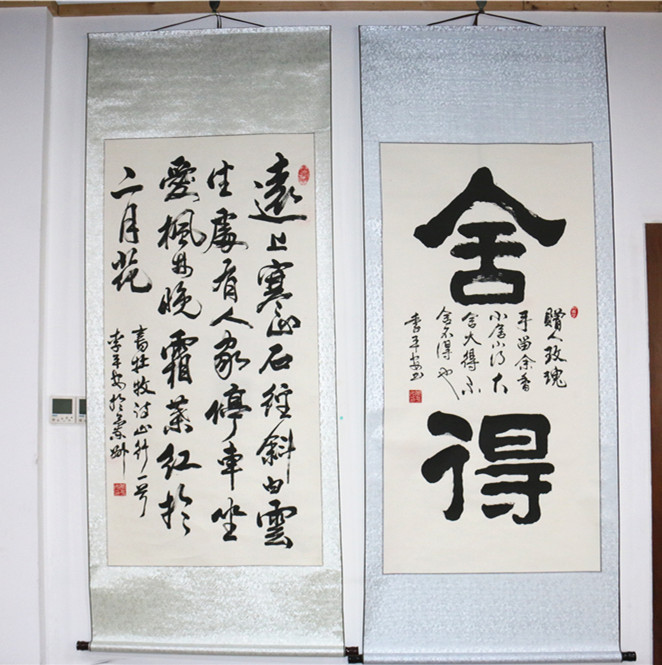 遠上寒山石径斜白雲
生處有人家停車坐
愛楓林晚霜葉紅於
二月花
書杜牧诗山行一首
李平安於
舍得
赠人玫瑰
手留余香
小舍小得大
舍大得不
舍不得也
李平安书